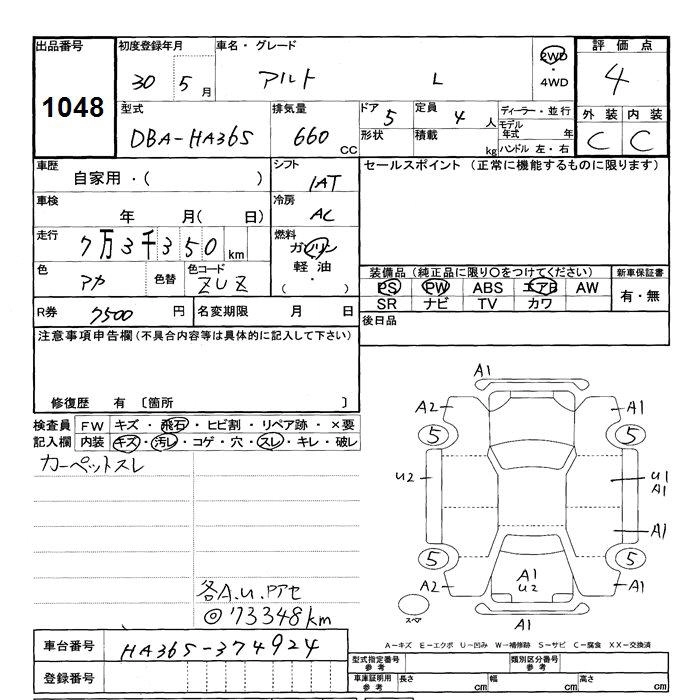 出品番号 初度登録年月 車名・グレード 評価点
1048 30 5月 アルト L 2WD・4WD 4
型式 排気量 ドア 5 定員 4人 ディーラー・並行 外装 内装
DBA-HA36S 660CC 形状 積載 kg モデル年式 年 ハンドル 左・右 C C
車歴 シフト セールスポイント(正常に機能するものに限ります)
自家用・( ) IAT
車検 冷房
年 月( 日) AC
走行 燃料
7万3千350km ガソリン・軽油・( )
色 アカ 色替 色コード ZUZ
装備品(純正品に限り○をつけてください) 新車保証書
PS PW ABS エアB AW 有・無
SR ナビ TV カワ
R券 7500円 名変期限 月 日 後日品
注意事項申告欄(不具合内容等は具体的に記入して下さい)
修復歴 有 〔箇所 〕
検査員 FW キズ・飛石・ヒビ割・リペア跡・×要
記入欄 内装 キズ・汚レ・コゲ・穴・スレ・キレ・破レ
カーペットスレ
A1
A2 A1
5 5
U2 U1
A1
A1
5 5
A2 A1 U2 A1
スペア A1
各A.U.Pアセ
◎73348km
A-キズ E-エクボ U-凹み W-補修跡 S-サビ C-腐食 XX-交換済
車台番号 HA36S-374924
型式指定番号 参考 類別区分番号 参考
登録番号 車庫証明用 参考 長さ cm 幅 cm 高さ cm